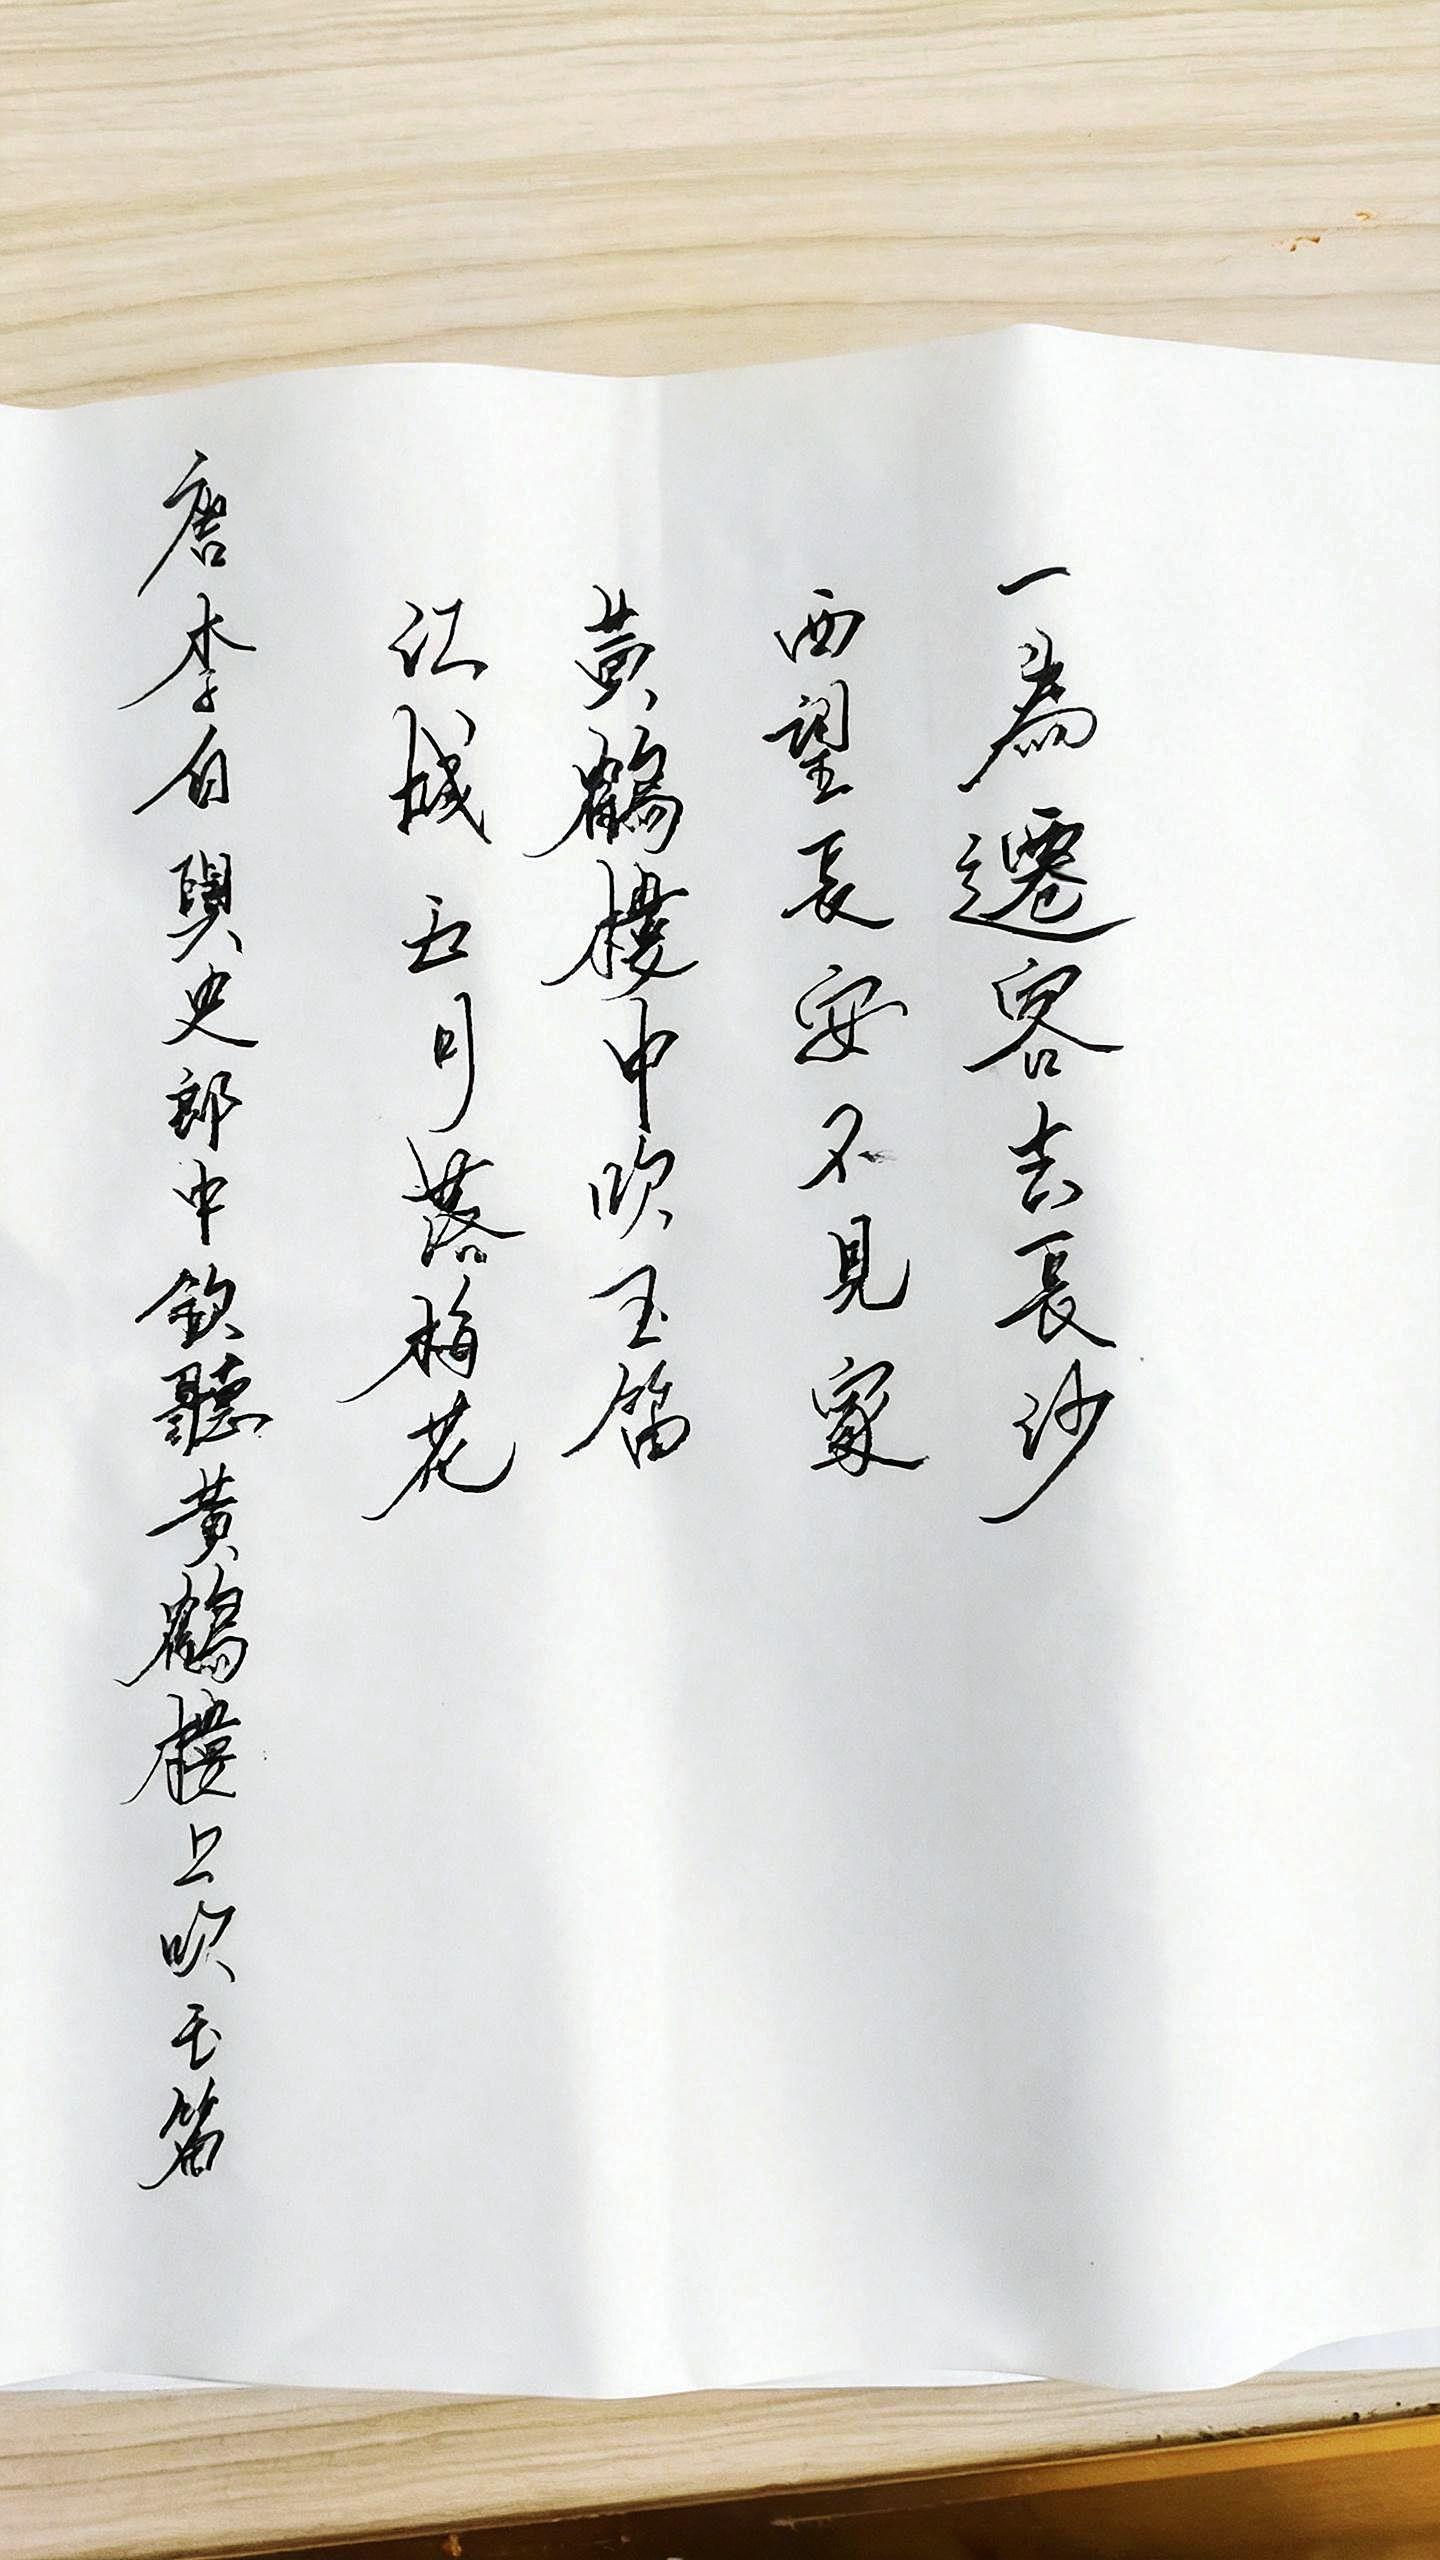 一為遷客去長沙
西望長安不見家
黃鶴樓中吹玉笛
江城五月落梅花
唐李白與史郎中欽聽黃鶴樓上吹玉笛